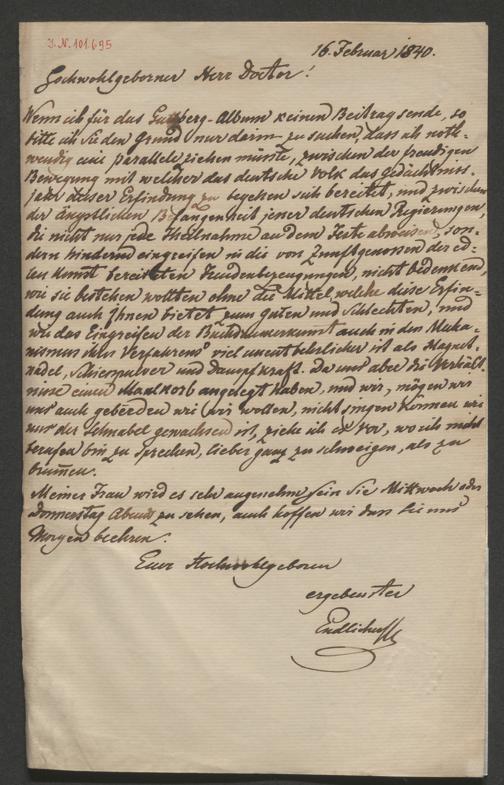 J. N. 101.695
16. Februar 1840.
Hochwohlgeborner Herr Doctor!
Wenn ich für das Guttberg-Album keinen Beitrag sende, so
bitte ich Sie den Grund nur darin zu suchen, dass ich noth-
wendig eine parallele ziehen müsste, zwischen der freudigen
Bewegung mit welcher das deutsche Volk das Gedächtniss-
jahr dieser Erfindung zu begehen sich bereitet, und zwischen
der ängstlichen Befangenheit jener deutschen Regierungen,
die nicht nur jede Theilnahme an dem Feste abweisen, son-
dern hindernd eingreifen in die von Zunftgenossen der ed-
len Kunst bereiteten Freudenbezeugungen, nicht bedenkend,
wie sie bestehen wollten ohne die Mittel, welche diese Erfin-
dung auch Ihnen bietet zum guten und schlechten, und
wie das Eingreifen der Buchdruckerkunst auch in den Mecha-
nismus ihres Verfahrens viel unentbehrlicher ist als Magnet-
nadel, Schiesspulver und Dampfkraft. Da uns aber die Verhält-
nisse einen Maulkorb angelegt haben, und wir, mögen wir
uns auch geberden wie wir wollen, nicht singen können wie
uns der Schnabel gewachsen ist, ziehe ich es vor, wo ich nicht
berufen bin zu sprechen, lieber ganz zu schweigen, als zu
brummen.
Meiner Frau wird es sehr angenehm sein Sie Mittwoch oder
Donnerstag Abends zu sehen, auch hoffen wir dass Sie uns
Morgen beehren.
Euer Hochwohlgeboren
ergebenster
Endlicher